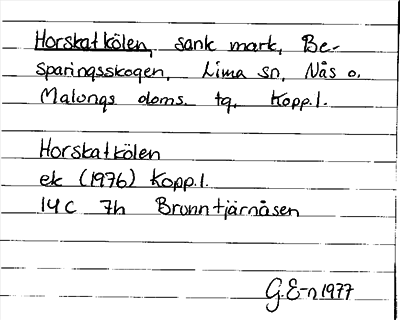 Horskatkölen, sank mark, Be-
sparingsskogen, Lima sn, Nås o.
Malungs doms. tg, Kopp.l.
Horskatkölen
ek (1976) Kopp.l.
14C 7h Brunntjärnåsen
G.E-n 1977